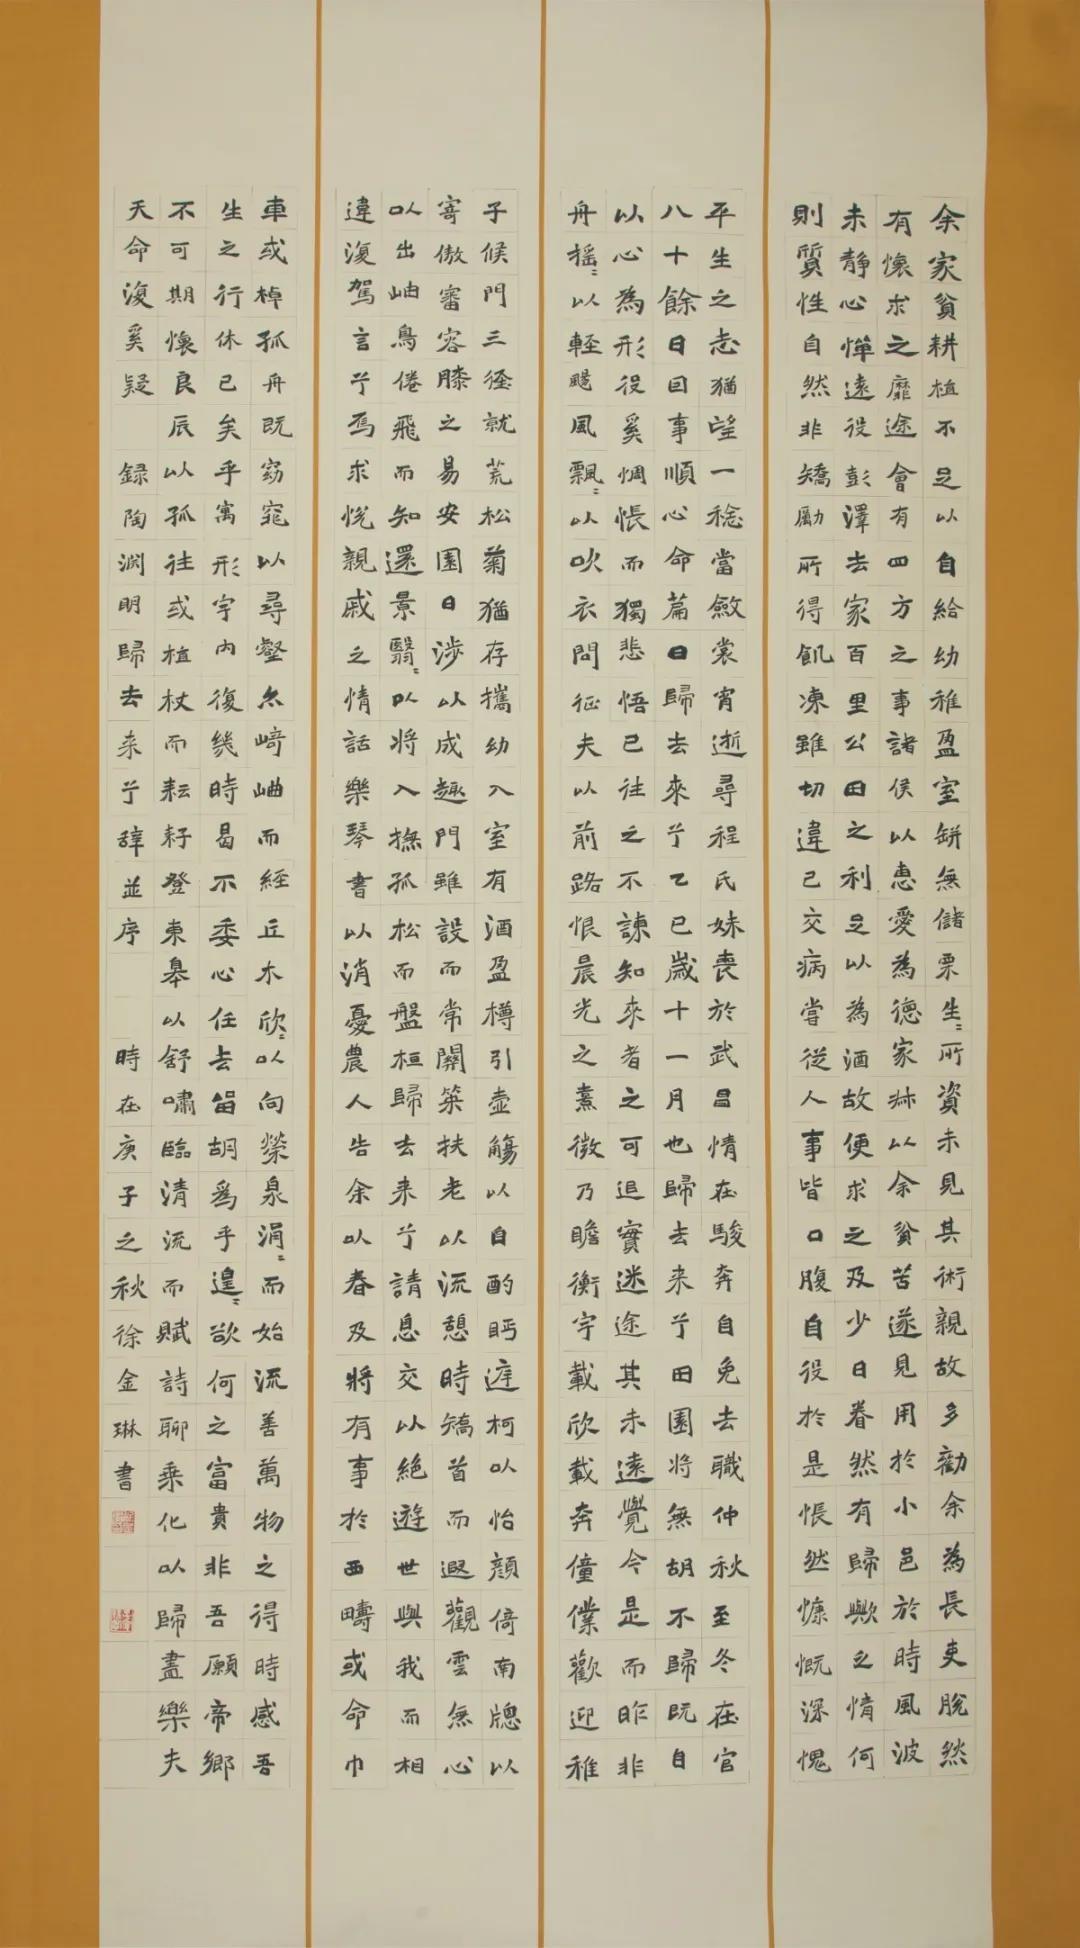 余家貧耕植不足以自給幼稚盈室缾無儲粟生〻所資未見其術親故多勸余為長吏脫然
有懷求之靡途會有四方之事諸侯以惠愛為德家叔以余貧苦遂見用於小邑於時風波
未靜心憚遠役彭澤去家百里公田之利足以為酒故便求之及少日眷然有歸歟之情何
則質性自然非矯勵所得飢凍雖切違己交病嘗從人事皆口腹自役於是悵然慷慨深愧
平生之志猶望一稔當斂裳宵逝尋程氏妹喪於武昌情在駿奔自免去職仲秋至冬在官
八十餘日因事順心命篇曰歸去來兮乙巳歲十一月也歸去来兮田園將無胡不歸既自
以心為形役奚惆悵而獨悲悟已往之不諫知來者之可追實迷途其未遠覺今是而昨非
舟摇〻以輕颺風飄〻以吹衣問征夫以前路恨晨光之熹微乃瞻衡宇載欣載奔僮僕歡迎稚
子候門三徑就荒松菊猶存攜幼入室有酒盈樽引壺觴以自酌眄庭柯以怡顏倚南牕以
寄傲審容膝之易安園日涉以成趣門雖設而常關策扶老以流憩時矯首而遐觀雲無心
以出岫鳥倦飛而知還景翳〻以將入撫孤松而盤桓歸去来兮請息交以絶遊世與我而相
違復駕言兮焉求悅親戚之情話樂琴書以消憂農人告余以春及將有事於西疇或命巾
車或棹孤舟既窈窕以尋壑亦崎岫而經丘木欣〻以向榮泉涓〻而始流善萬物之得時感吾
生之行休已矣乎寓形宇内復幾時曷不委心任去留胡爲乎遑〻欲何之富貴非吾願帝鄉
不可期懷良辰以孤往或植杖而耘耔登東皋以舒嘯臨清流而賦詩聊乘化以歸盡樂夫
天命復奚疑 録陶渊明歸去来兮辞並序 時在庚子之秋徐金琳書